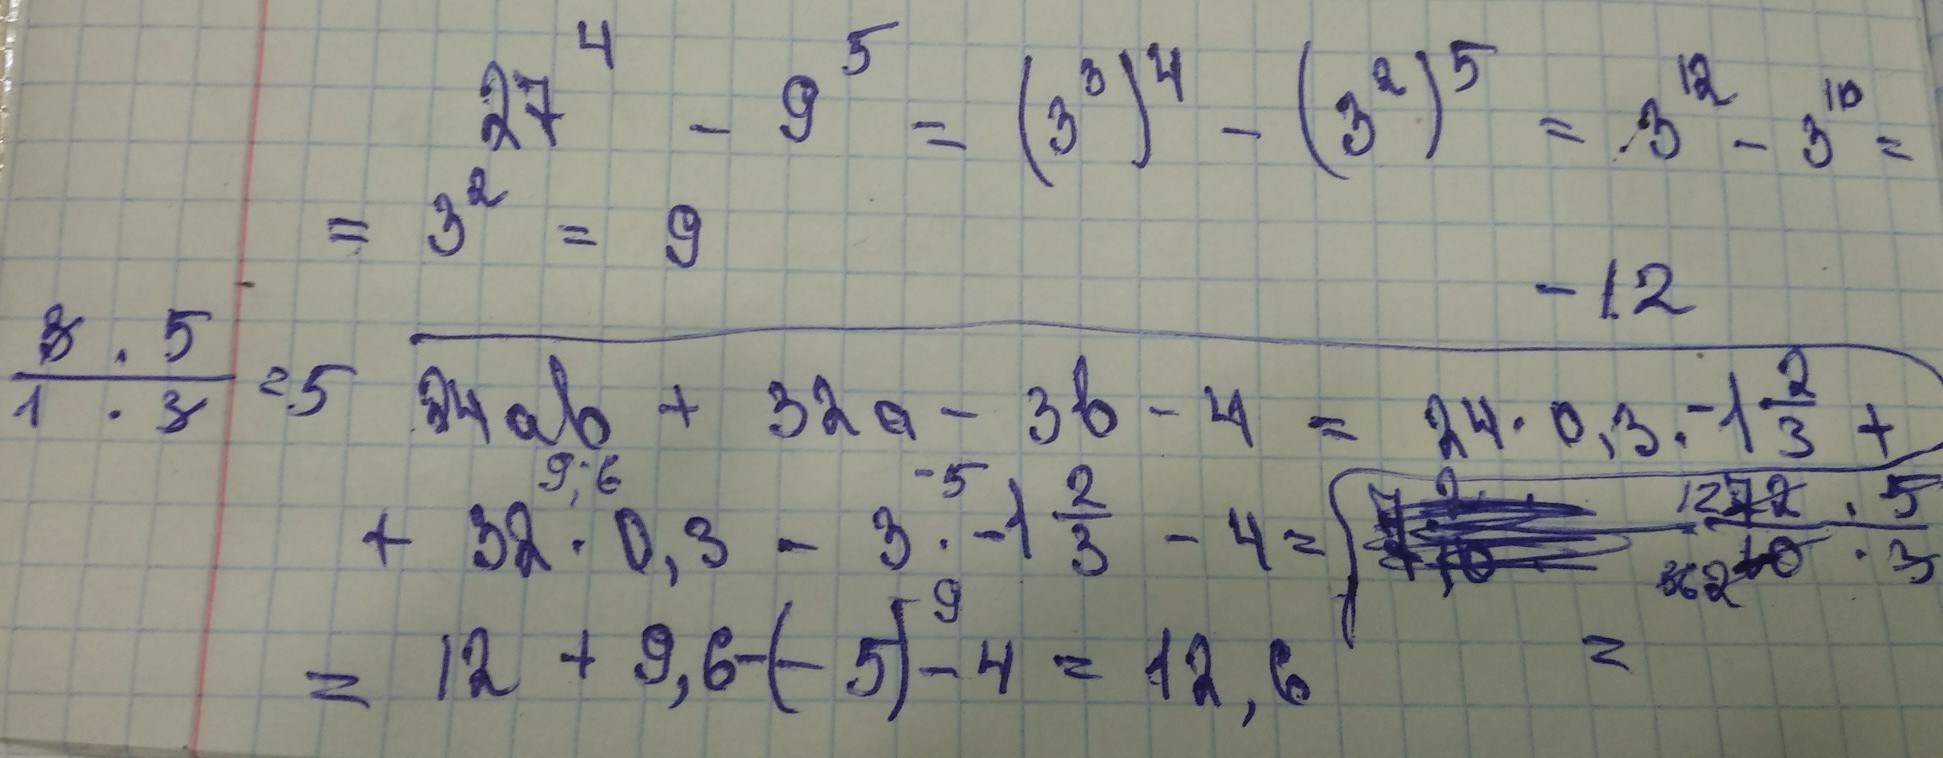 27⁴ - 9⁵ = (3³)⁴ - (3²)⁵ = 3¹² - 3¹⁰ =
= 3² = 9
-12
3 · 5 / 1 · 3 = 5
24ab + 32a - 3b - 4 = 24 · 0,3 · -1 2/3 +
9,6 -5
+ 32 · 0,3 - 3 · -1 2/3 - 4 =
· 5 / · 3
9
= 12 + 9,6 - (-5) - 4 = 12,6
=